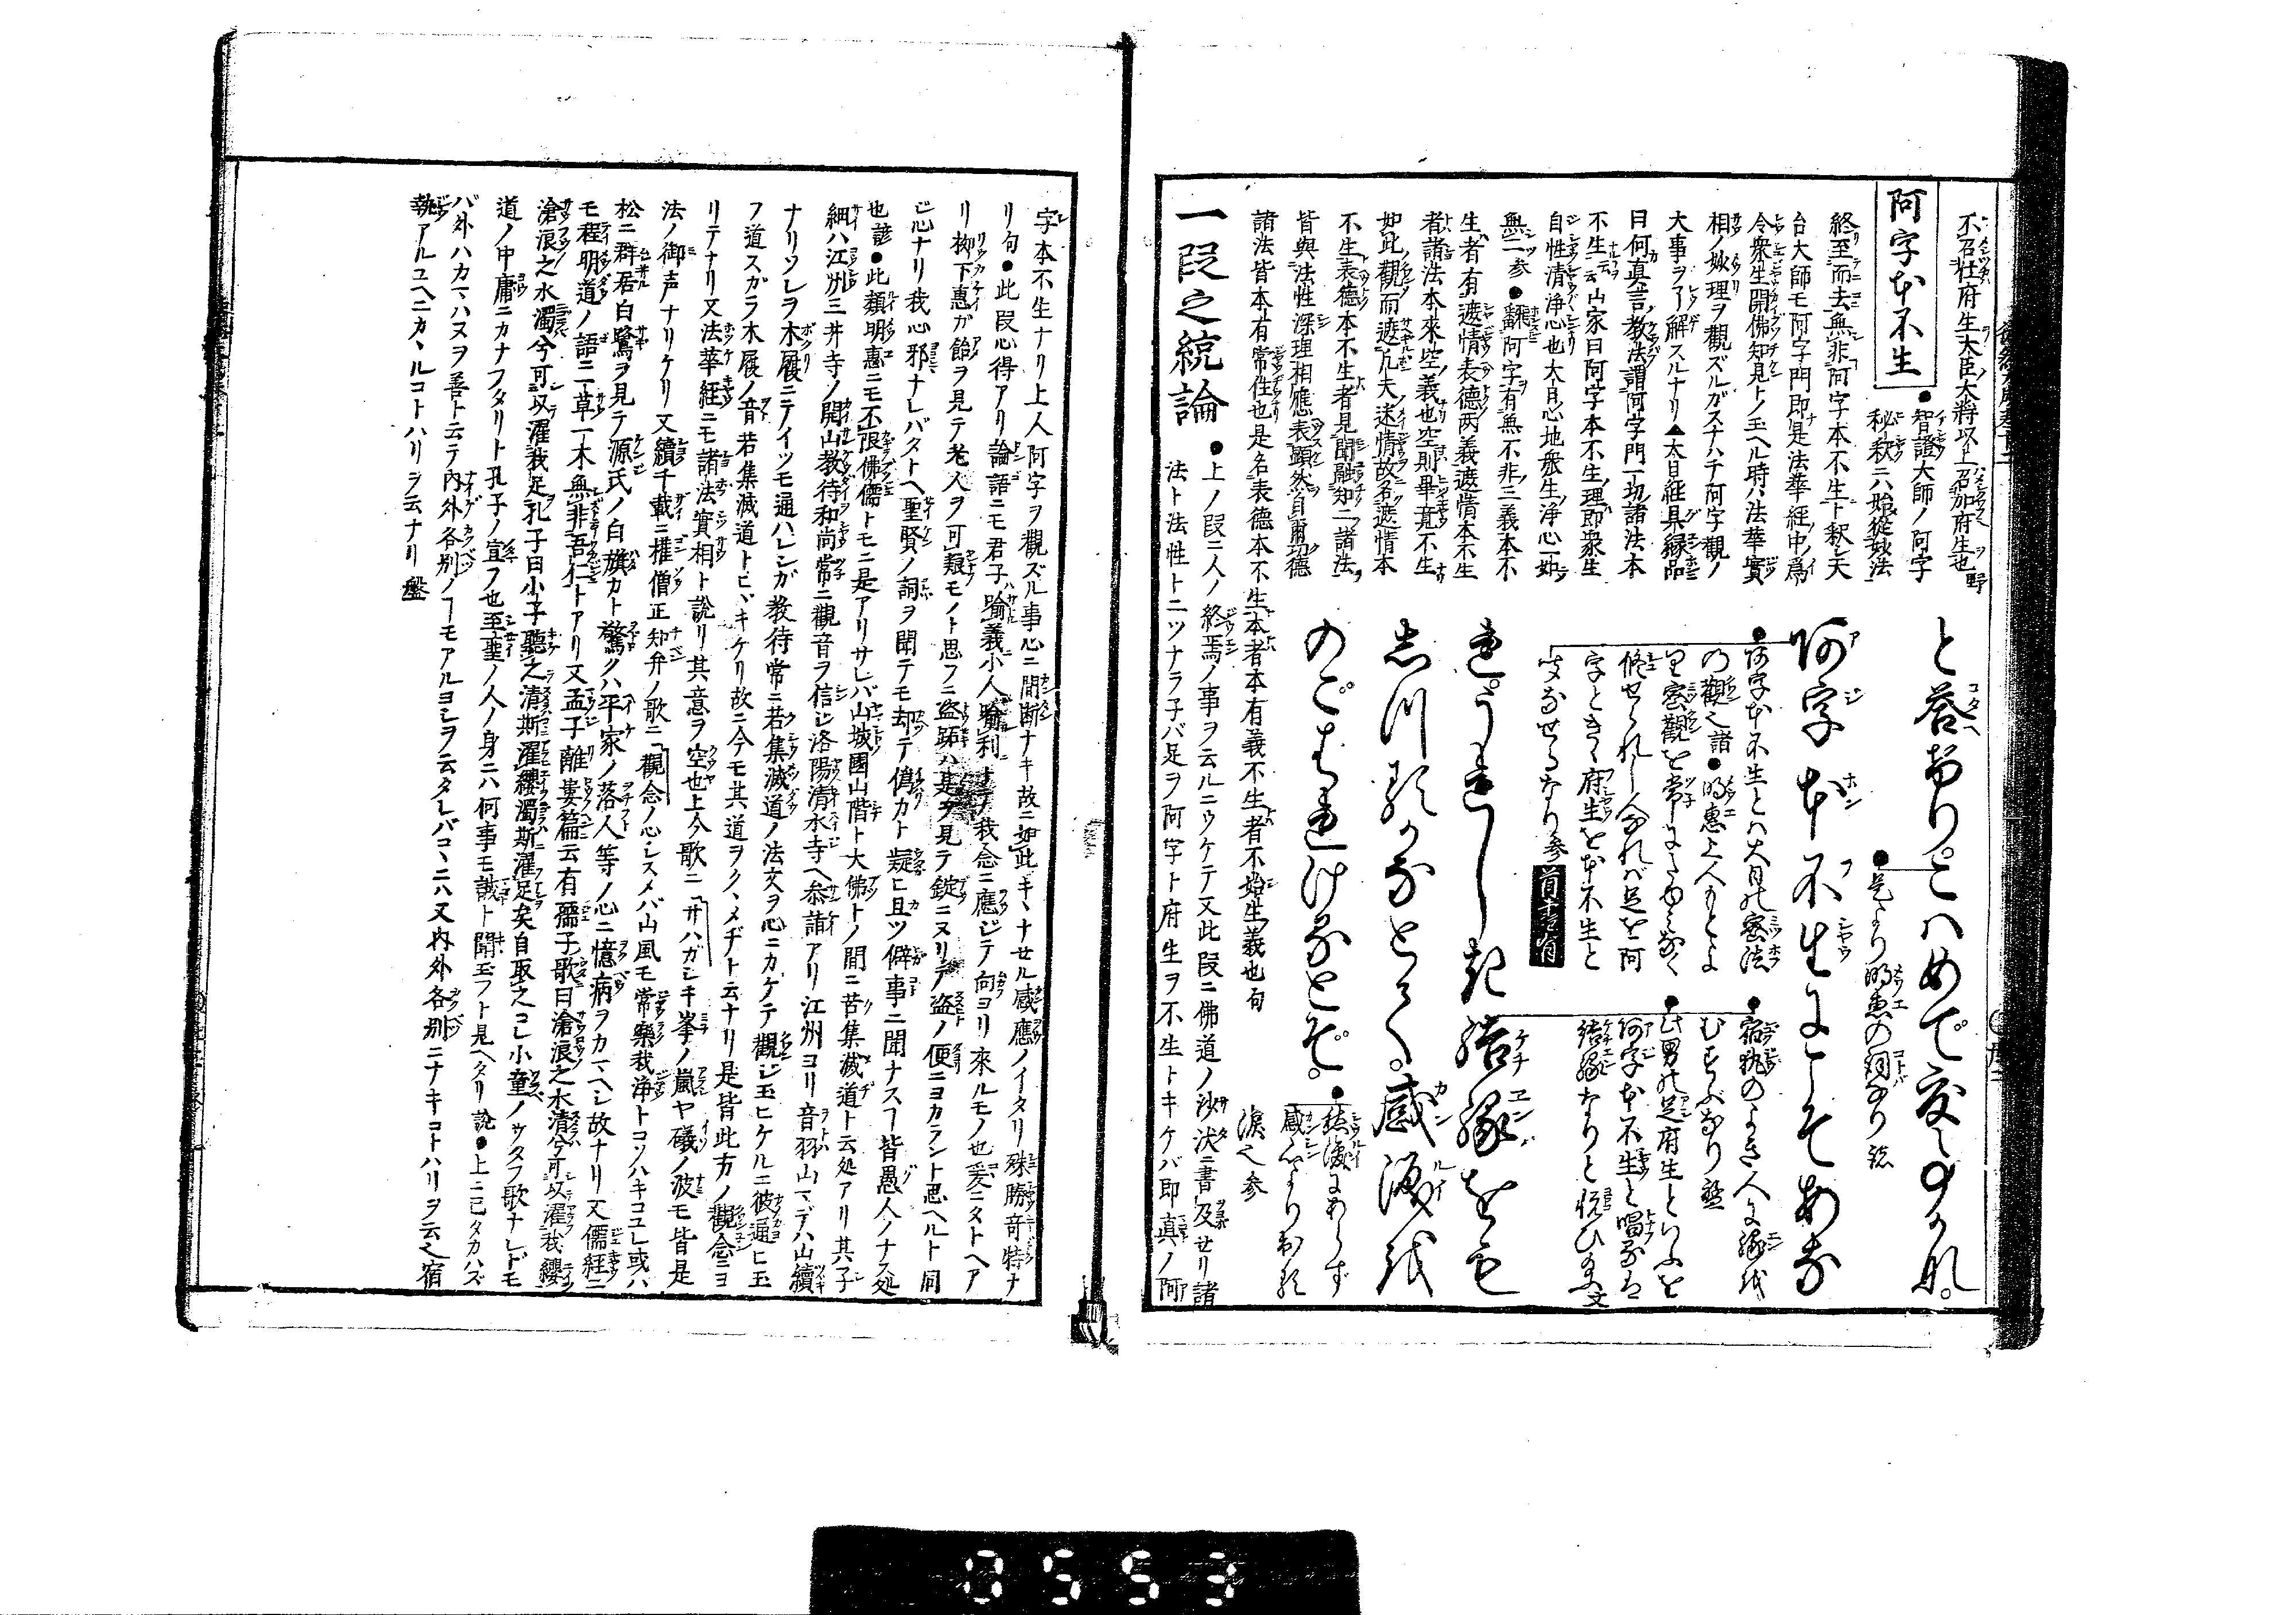 不召仕府生大臣大将以上召加府生也 野
阿字本不生
●智證大師ノ阿字
秘釈ニ六始從妙法
終至而去無非阿字本不生ト釈シ天
台大師モ阿字門即是法華経中ノ為
令衆生開佛知見トノ玉ヘル時ハ法華實
相ノ妙理ヲ觀ズルガスナハチ阿字觀ノ
大事ヲ了解スルナリ▲大日経具縁品
曰何真言教法謂阿字門一切諸法本
不生云山家曰阿字本不生理即衆生
自性清浄心也大日心地衆生浄心一如
無二参●翻阿字有無不非三義本不
生者有遮情表德两義遮情本不生
者諸法本來空義也空則畢竟不生
如此觀而遮凢夫迷情故名遮情本
不生表德本不生者見聞觸知ニ諸法
皆與法性深理相應表顯然自爾切德
諸法皆本有常住也是名表德本不生本者本有義不生者不始生義也句
と答申り。こハめで度事かな。
●是より明恵の詞なり 諺
阿字本不生にこそあな
●阿字本不生とハ大日の密法
の觀之諸●明惠上人もとよ
り密觀を常に
修せられし人なれバ足を阿
字ときゝ府生を本不生と
●宿執のよき人に縁を
むすぶなり 盤
●此男の足府生といふを
阿字本不生と唱るは
結縁なりと悦ひ給 文
れ。うれしき結縁をも
志川るかなとて。感涙を
のごはれけるとぞ。
感心より出る
涙之参
一段之統論
●上ノ段ニ人ノ終焉ノ事ヲ云ルニウケテ又此段ニ佛道ノ沙汰ニ書及セリ諸
法ト法性トニツナラ子バ足ヲ阿字ト府生ヲ不生トキケバ即真ノ阿
字本不生ナリ上人阿字ヲ觀ズル事心ニ間断ナキ故ニ如此キヽナせル感應ノイタリ殊勝奇特ナ
リ句●此段心得アリ論語ニモ君子喩義小人喩利 我念ニ應ジテ向ヨリ來ルモノ也爰ニタトヘア
リ柳下惠ガ飴ヲ見テ老人ヲ可観モノト思フニ盗跖ハ是ヲ見テ錠ニヌリテ盗ノ便ニヨカラント思ヘルト同
ジ心ナリ我心邪ナレバタトヘ聖賢ノ詞ヲ聞テモ却テ偽カト疑ヒ且ツ僻事ニ聞ナスヿ皆愚人ノナス処
也諺●此類明惠ニモ不限佛儒トモニ是アリサレバ山城國山階ト大佛トノ間ニ苦集滅道ト云処アリ其子
細ハ江州三井寺ノ開山教待和尚常ニ觀音ヲ信ジ洛陽清水寺ヘ参詣アリ江州ヨリ音羽山マデハ山續
ナリソレヲ木履ニテイツモ通ハレシガ教待常ニ若集滅道ノ法文ヲ心ニカケテ觀ジ玉ヒケルニ彼通ヒ玉
フ道スガラ木履ノ音若集滅道トヒヾキケリ故ニ今モ其道ヲクヽメヂト云ナリ是皆此方ノ觀念ニヨ
リテナリ又法華経ニモ諸法實相ト說リ其意ヲ空也上今歌ニ「サハガシキ峯ノ嵐ヤ礒ノ波モ皆是
法ノ御声ナリケリ又續千載ニ権僧正知弁ノ歌ニ「觀念ノ心シスメバ山風モ常樂我浄トコソハキコユレ或ハ
松ニ群吾白鷺ヲ見テ源氏ノ白旗カト驚クハ平家ノ落人等ノ心ニ憶病ヲカマヘシ故ナリ又儒経ニ
モ程明道ノ語ニ一草一木無非吾仁トアリ又孟子離婁篇云有孺子歌曰滄浪之水清兮可以濯我纓
滄浪之水濁兮可以濯我足孔子曰小子聽之清斯濯纓濁斯濯足矣自取之コレ小童ノウタフ歌ナレドモ
道ノ中庸ニカナフタリト孔子ノ宣フ也至聖ノ人ノ身ニハ何事モ誠ト聞玉フト見ヘタリ說●上ニ己タカハズ
バ外ハカマハヌヲ善ト云テ内外各別ノヿモアルヨシヲ云タレバコヽニハ又内外各別ニナキコトハリヲ云之宿
執アルユヘニカヽルコトハリヲ云ナリ 盤
0553